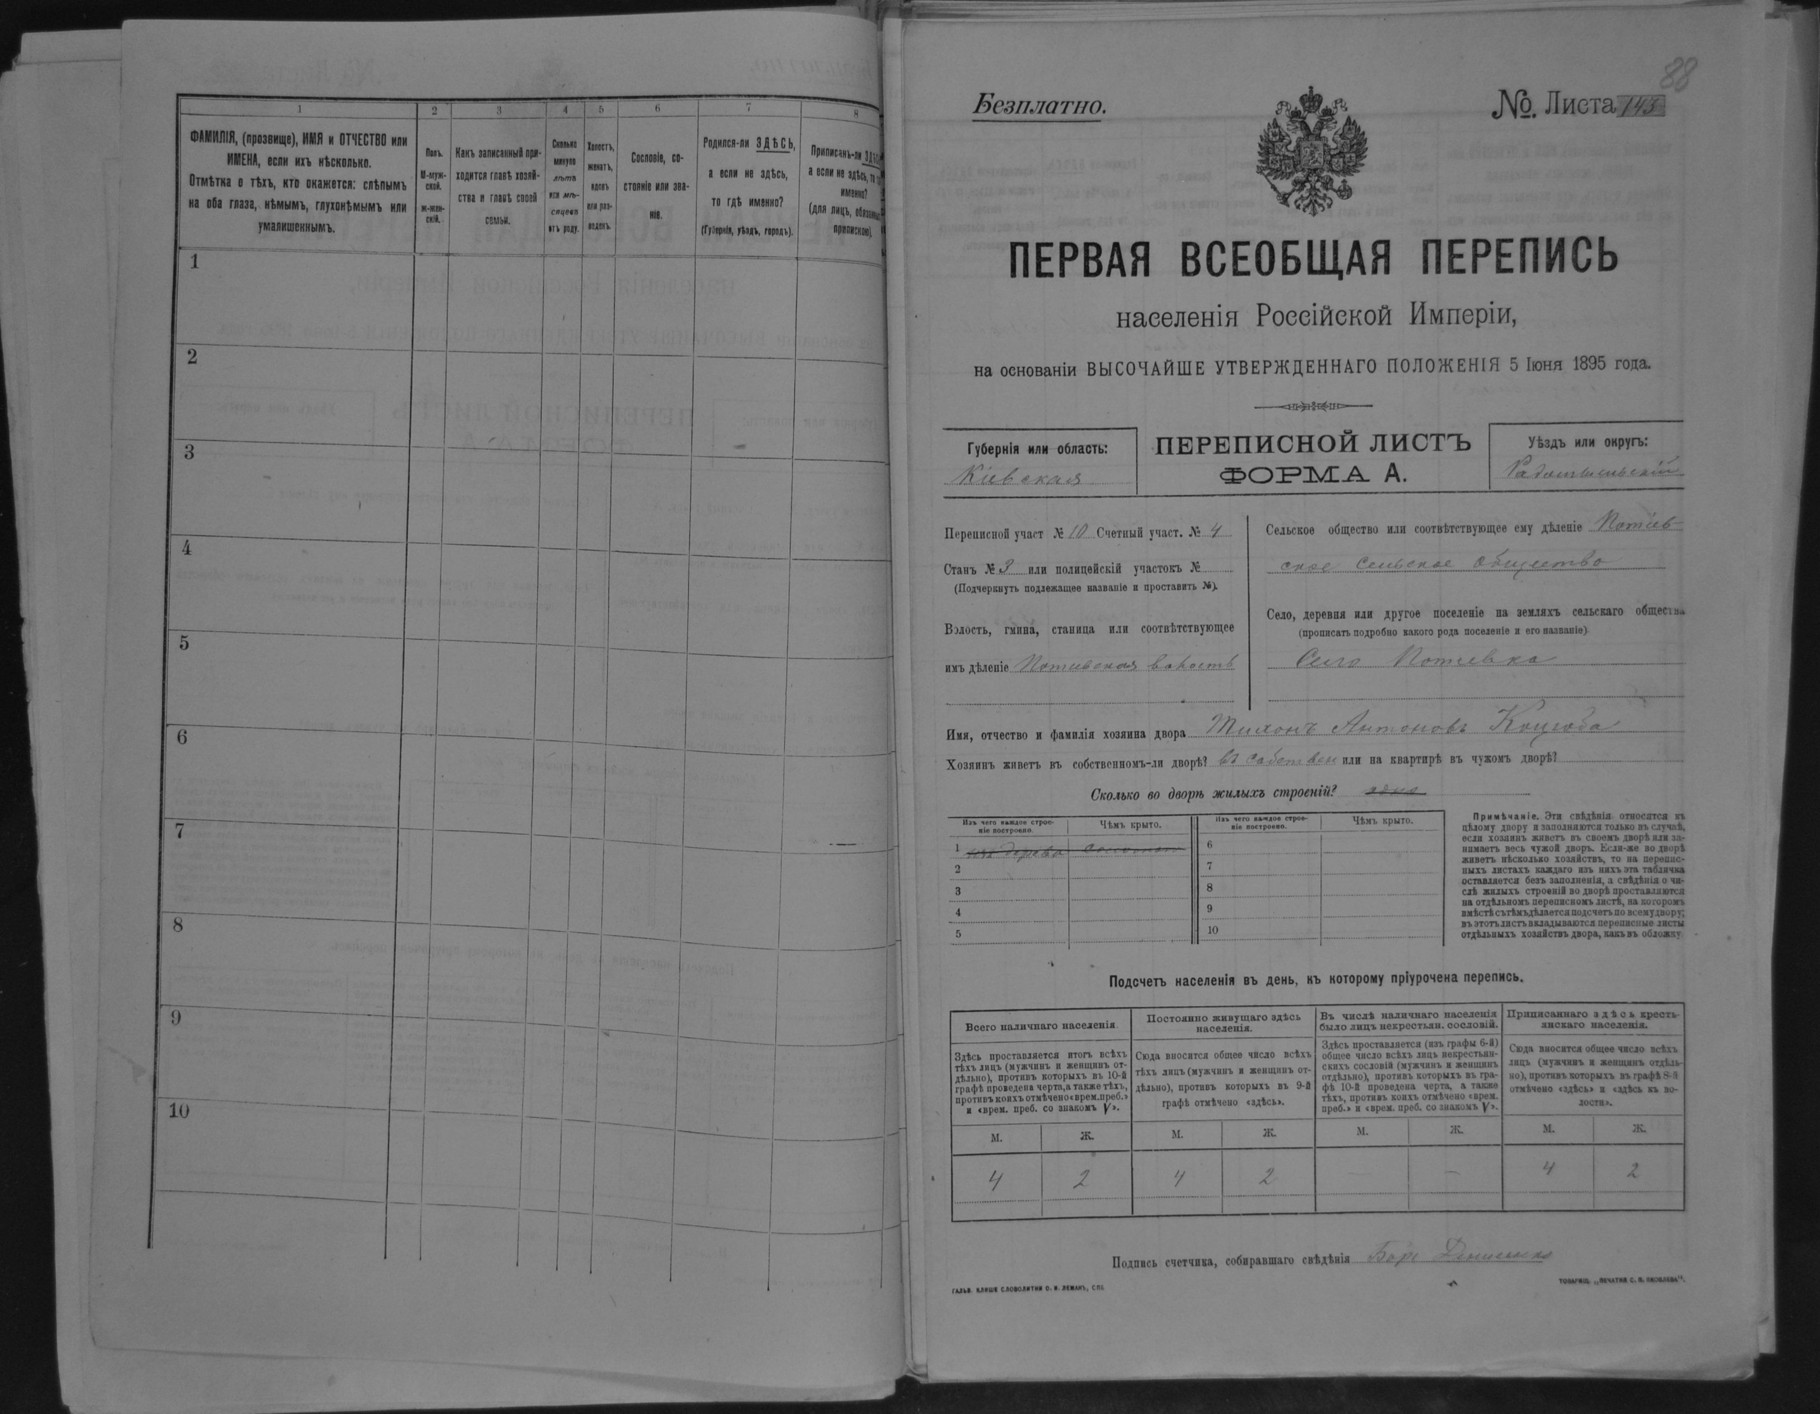 1
2
3
4
5
6
7
8
ФАМИЛІЯ, (прозвище), ИМЯ и ОТЧЕСТВО или
ИМЕНА, если ихъ нѣсколько.
Отмѣтка о тѣхъ, кто окажется: слѣпымъ
на оба глаза, нѣмымъ, глухонѣмымъ или
умалишеннымъ.
Полъ.
М-муж-
ской.
Ж-жен-
скій.
Какъ записанный при-
ходится главѣ хозяй-
ства и главѣ своей
семьи.
Сколько
минуло
лѣтъ
или мѣ-
сяцевъ
отъ роду.
Холостъ,
женатъ,
вдовъ
или раз-
веденъ.
Сословіе, со-
стояніе или зва-
ніе.
Родился-ли ЗДѢСЬ,
а если не здѣсь,
то гдѣ именно?
(Губернія, уѣздъ, городъ).
Приписанъ-ли
а если не здѣсь,
именно?
(для лицъ,
припискою).
1
2
3
4
5
6
7
8
9
10
88
Безплатно.
№. Листа 143
ПЕРВАЯ ВСЕОБЩАЯ ПЕРЕПИСЬ
населенія Россійской Имперіи,
на основаніи ВЫСОЧАЙШЕ УТВЕРЖДЕННАГО ПОЛОЖЕНІЯ 5 Іюня 1895 года.
Губернія или область:
Кіевская
ПЕРЕПИСНОЙ ЛИСТЪ
ФОРМА А.
Уѣздъ или округъ:
Радомысльскій
Переписной участ № 10 Счетный участ. № 4
Станъ № 3 или полицейскій участокъ №
(Подчеркнуть подлежащее названіе и проставить №).
Волость, гмина, станица или соотвѣтствующее
имъ дѣленіе Потіевская волость
Сельское общество или соотвѣтствующее ему дѣленіе Потіев-
ское сельское общество
Село, деревня или другое поселеніе на земляхъ сельскаго общества
(прописать подробно какого рода поселеніе и его названіе)
Село Потіевка
Имя, отчество и фамилія хозяина двора Тихонъ Антоновъ Коцюба
Хозяинъ живетъ въ собственномъ-ли дворѣ? въ собствен или на квартирѣ въ чужомъ дворѣ?
Сколько во дворѣ жилыхъ строеній? одно
Изъ чего каждое строе-
ніе построено.
Чѣмъ крыто.
Изъ чего каждое строе-
ніе построено.
Чѣмъ крыто.
1 изъ дерева соломою
2
3
4
5
6
7
8
9
10
Примѣчаніе. Эти свѣдѣнія относятся къ
цѣлому двору и заполняются только въ случаѣ,
если хозяинъ живетъ въ своемъ дворѣ или за-
нимаетъ весь чужой дворъ. Если-же во дворѣ
живетъ нѣсколько хозяйствъ, то на перепис-
ныхъ листахъ каждаго изъ нихъ эта табличка
оставляется безъ заполненія, а свѣдѣнія о чи-
слѣ жилыхъ строеній во дворѣ проставляются
на отдѣльномъ переписномъ листѣ, на которомъ
вмѣстѣ съ тѣмъ дѣлается подсчетъ по всему двору;
въ этотъ листъ вкладываются переписные листы
отдѣльныхъ хозяйствъ двора, какъ въ обложку
Подсчетъ населенія въ день, къ которому пріурочена перепись.
Всего наличнаго населенія.
Постоянно живущаго здѣсь
населенія.
Въ числѣ наличнаго населенія
было лицъ некрестьян. сословій.
Приписаннаго здѣсь кресть-
янскаго населенія.
Здѣсь проставляется итогъ всѣхъ
тѣхъ лицъ (мужчинъ и женщинъ от-
дѣльно), противъ которыхъ въ 10-й
графѣ проведена черта, а также тѣхъ,
противъ коихъ отмѣчено «врем. преб.»
и «врем. преб. со знакомъ V».
Сюда вносится общее число всѣхъ
тѣхъ лицъ (мужчинъ и женщинъ от-
дѣльно), противъ которыхъ въ 9-й
графѣ отмѣчено «здѣсь».
Здѣсь проставляется (изъ графы 6-й)
общее число всѣхъ лицъ некрестьян-
скихъ сословій (мужчинъ и женщинъ
отдѣльно), противъ которыхъ въ гра-
фѣ 10-й проведена черта, а также
тѣхъ, противъ коихъ отмѣчено «врем.
преб.» и «врем. преб. со знакомъ V».
Сюда вносится общее число всѣхъ
лицъ (мужчинъ и женщинъ отдѣль-
но), противъ которыхъ въ графѣ 8-й
отмѣчено «здѣсь» и «здѣсь въ во-
лости».
М. Ж. М. Ж. М. Ж. М. Ж.
4 2 4 2 — — 4 2
Подпись счетчика, собиравшаго свѣдѣнія
ГАЛЬВ. КЛИШЕ СЛОВОЛИТНИ О. И. ЛЕМАНЪ, СПБ.
ТОВАРИЩ. „ПЕЧАТНЯ С. П. ЯКОВЛЕВА".